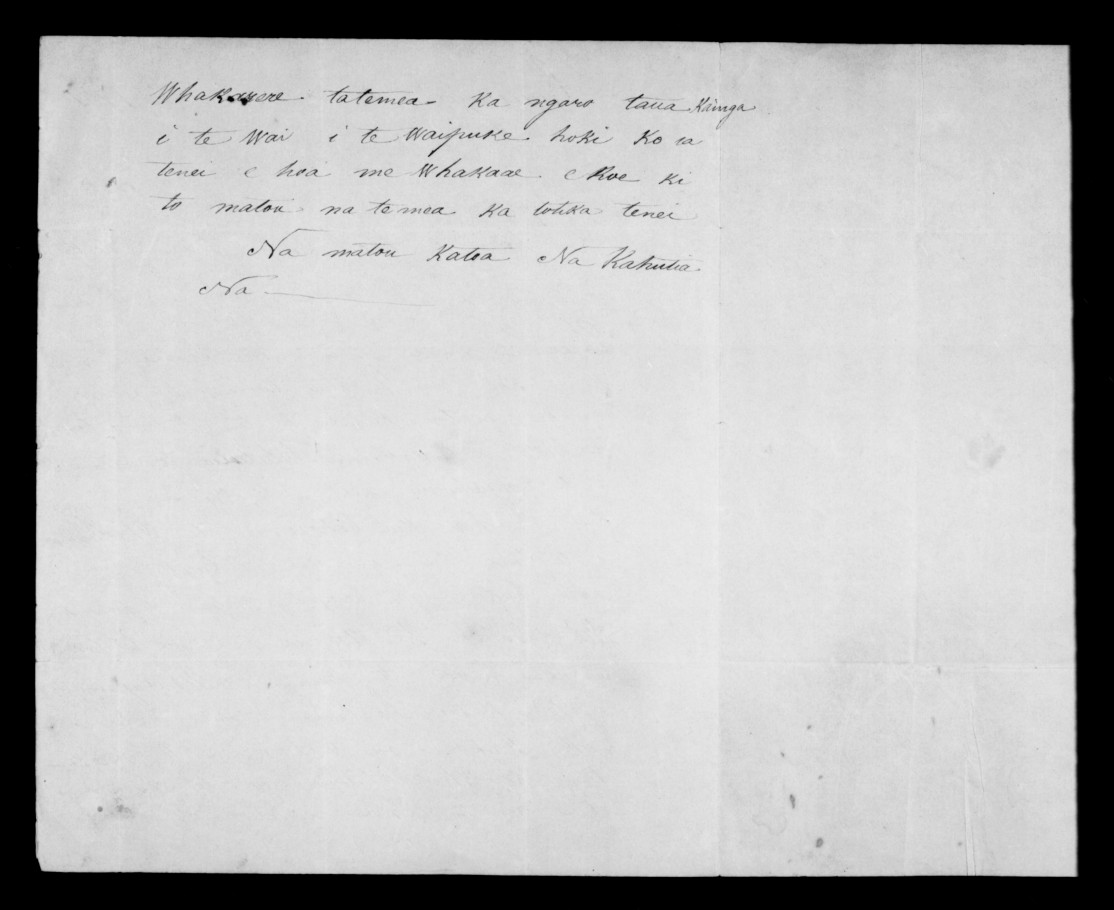 Whakarere tatemea Ka ngaro taua Kainga
i te Wai i te Waipuke hoki Ko ia
tenei e hoa me Whakaae e Koe ki
to matou na te mea Ka totika tenei
Na matou Katoa Na Kahutia
Na